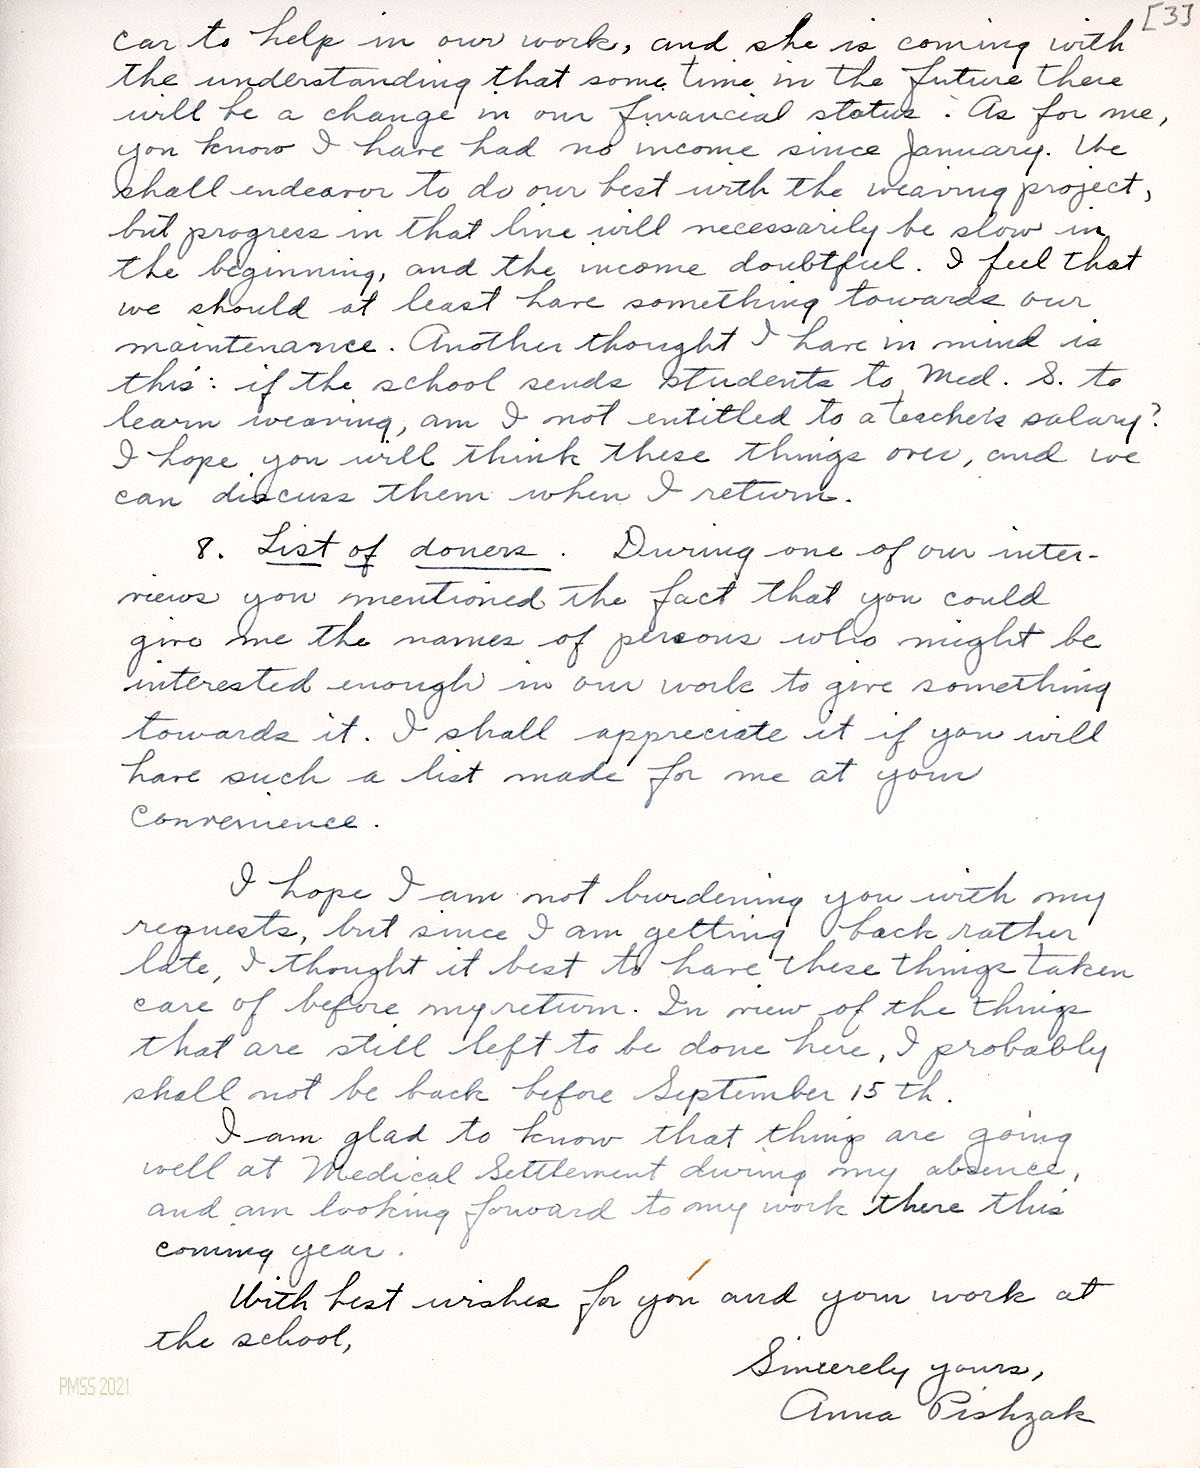 [3]
car to help in our work, and she is coming with
the understanding that some time in the future there
will be a change in our financial status. As for me,
you know I have had no income since January. We
shall endeavor to do our best with the weaving project,
but progress in that line will necessarily be slow in
the beginning, and the income doubtful. I feel that
we should at least have something towards our
maintenance. Another thought I have in mind is
this: if the school sends students to Med. S. to
learn weaving, am I not entitled to a teacher's salary?
I hope you will think these things over, and we
can discuss them when I return.
8. List of doners. During one of our inter-
views you mentioned the fact that you could
give me the names of persons who might be
interested enough in our work to give something
towards it. I shall appreciate it if you will
have such a list made for me at your
convenience.
I hope I am not burdening you with my
requests, but since I am getting back rather
late, I thought it best to have these things taken
care of before my return. In view of the things
that are still left to be done here, I probably
shall not be back before September 15th.
I am glad to know that things are going
well at Medical Settlement during my absence,
and am looking forward to my work there this
coming year.
With best wishes for you and your work at
the school,
Sincerely yours,
Anna Pishzak
PMSS 2021